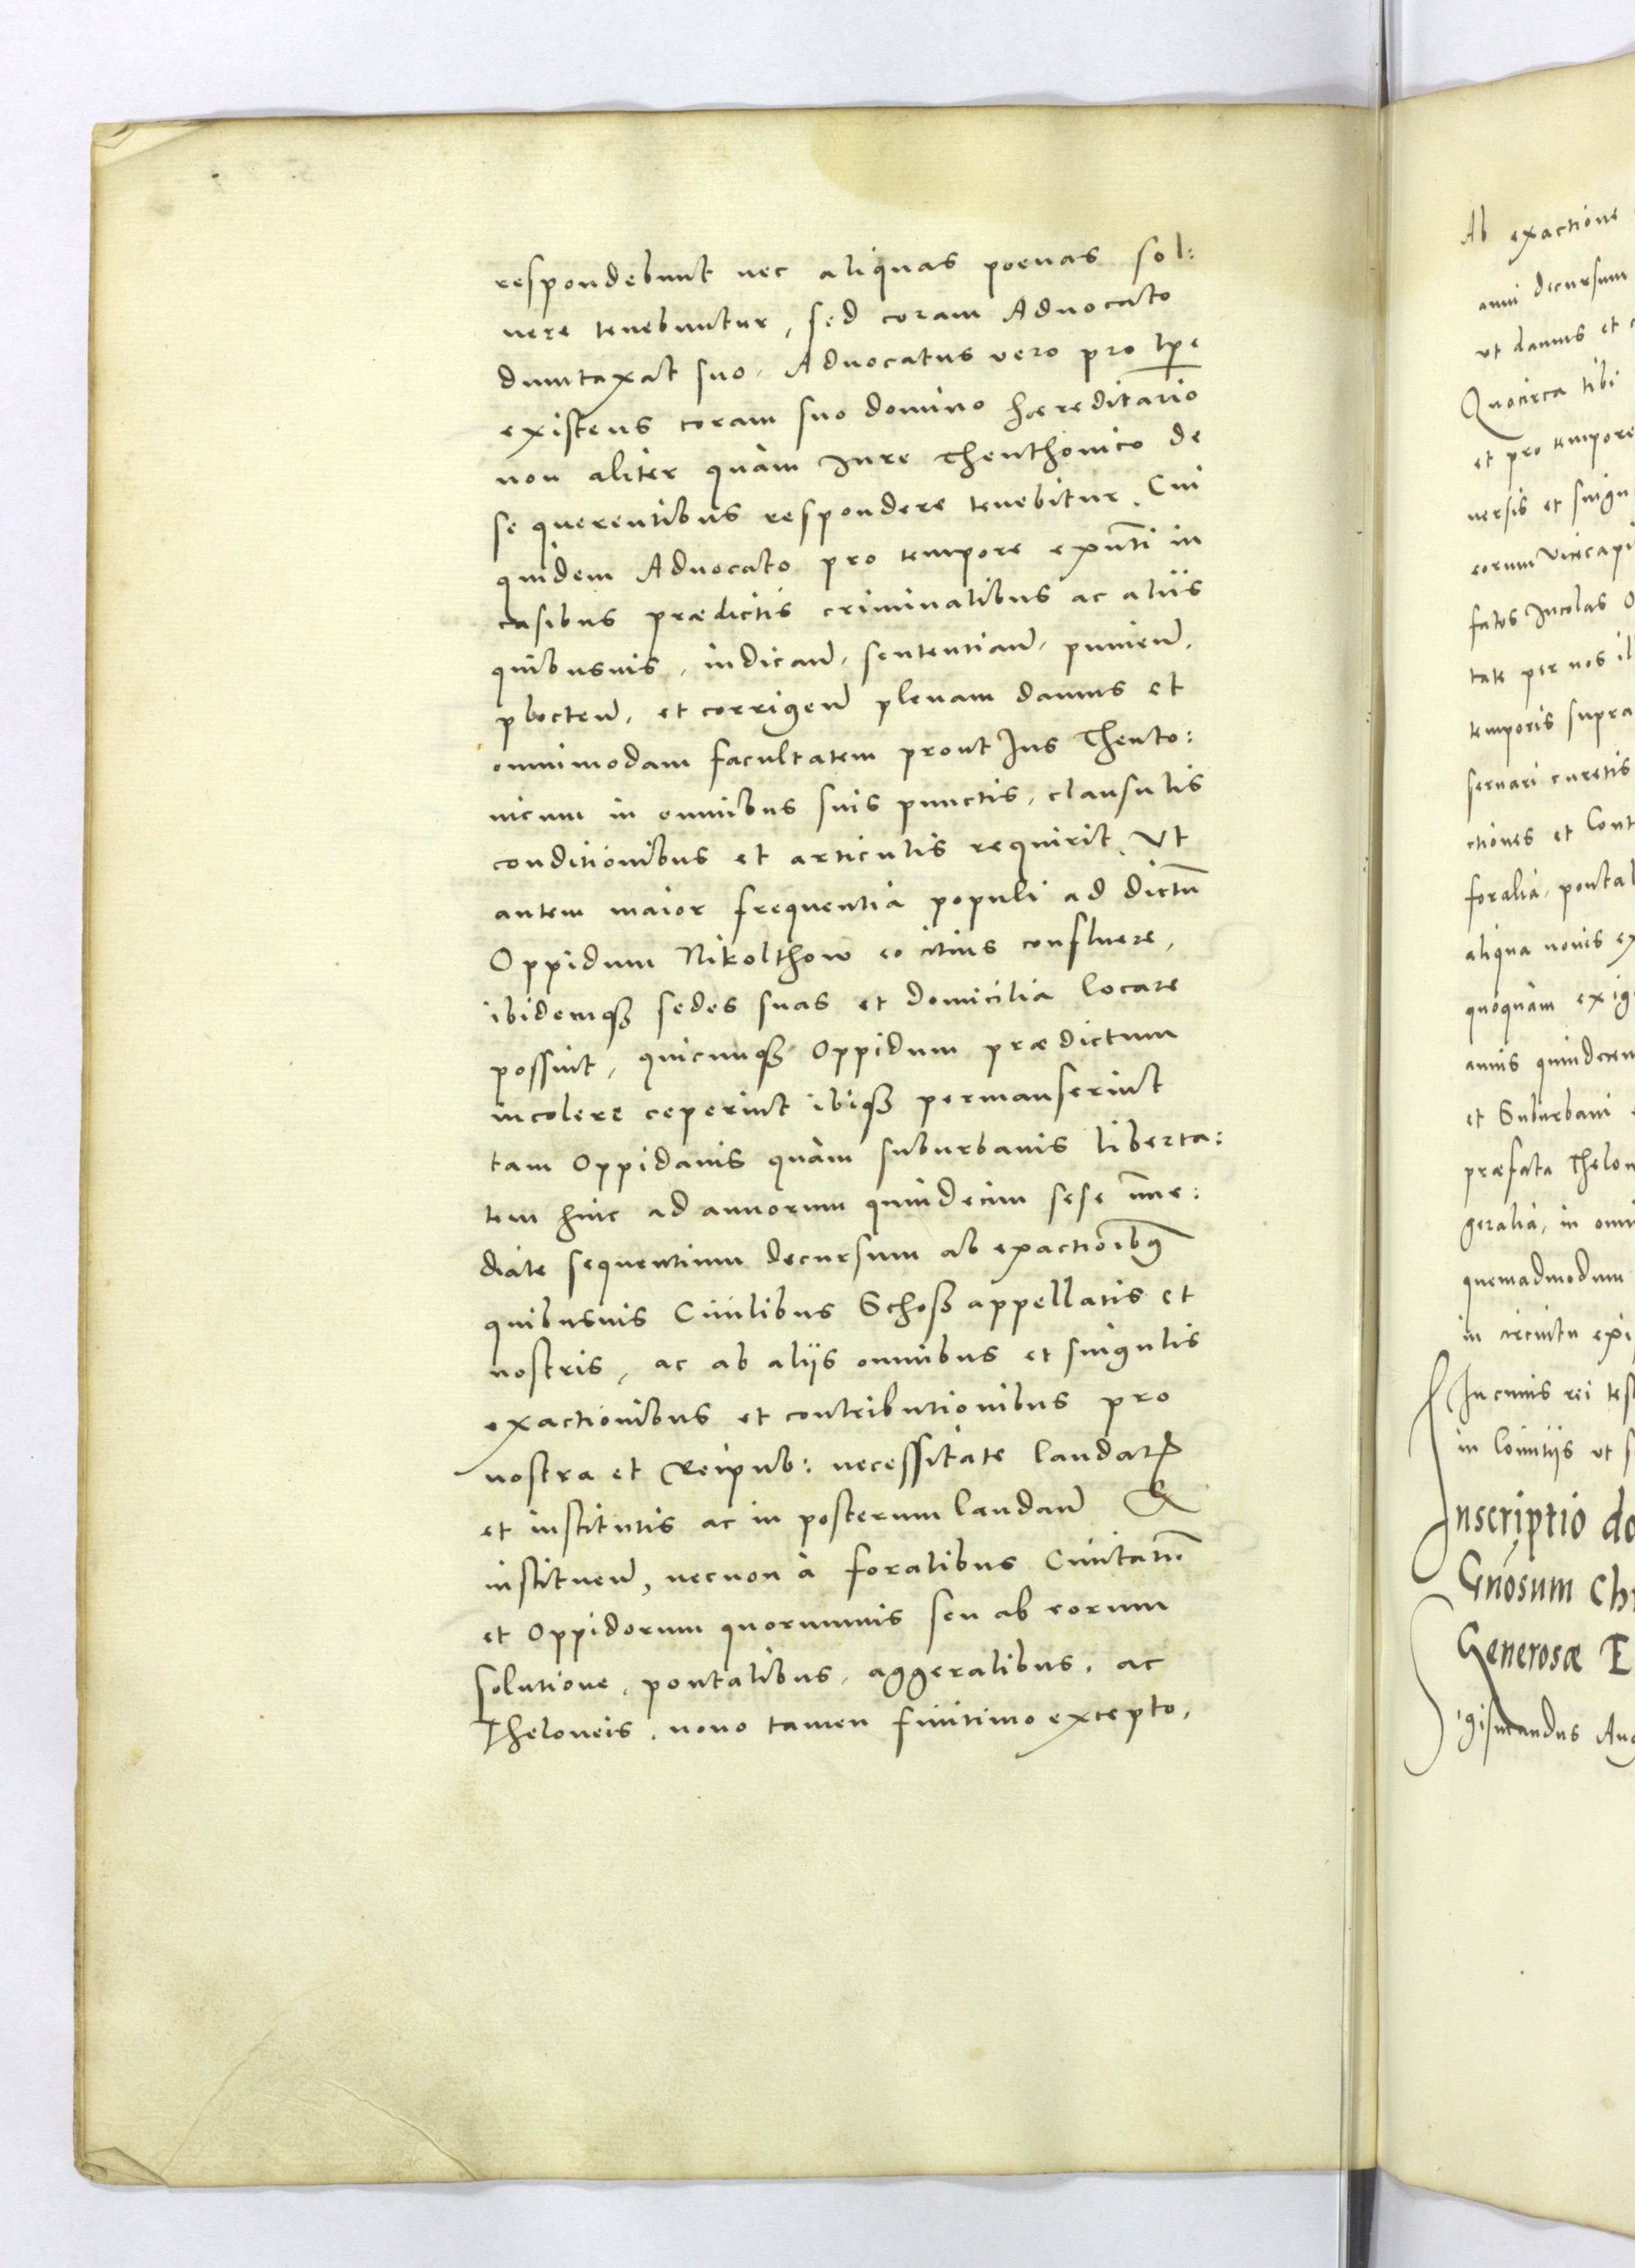 respondebunt nec aliquas poenas sol:
vere tenebuntur, sed coram Advocato
dumtaxat suo. Advocatus vero pro tp̄e
existens coram suo domino hæreditario
non aliter quàm Iure Theuthonico de
se querentibus respondere tenebitur. Cui
quidem Advocato pro tempore exn̄ti in
casibus prædictis criminalibus ac aliis
quibusvis, iudican̄, sententian̄, punien̄,
plecten̄, et corrigen̄ plenam damus et
omnimodam facultatem prout Ius Theuto:
nicum in omnibus suis punctis, clausulis
conditionibus et articulis requirit. Vt
autem maior frequentia populi ad dictū
Oppidum Nikolthow eo citius confluere,
ibidemqȝ sedes suas et domicilia locare
possint, quicunqȝ Oppidum prædictum
incolere ceperint ibiqȝ permanserint
tam Oppidanis quàm suburbanis liberta:
tem hinc ad annorum quindecim sese im̄e:
diate sequentium decursum ab exactioībꝰ
quibusvis Civilibus Schoß appellatis et
nostris, ac ab aliis omnibus et singulis
exactionibus et contributionibus pro
nostra et Reipub: necessitate laudatꝭ
et institutis ac in posterum laudan̄ &
instituen̄, necnon à foralibus Civitatū
et Oppidorum quorumvis seu ab eorum
solutione, pontalibus, aggeralibus, ac
Theloneis, novo tamen finitimo excepto,
Ab exactione
anni decursum
vt damus et
Quocirca tibi
et pro tempore
versis et singu
eorum Vicecapi
fatos Incolas O
tate per nos il
temporis supra
servari curetis
ctiones et Cont
foralia, pontal
aliqua novis ex
quoquam exig
annis quindecim
et Suburbani
præfata Thelon
geralia, in omni
quemadmodum
in circuitu exp
In cuius rei tes
in Comitiis vt s
Inscriptio do
Gn̄osum Ch
Generosæ E
Sigismundus Aug